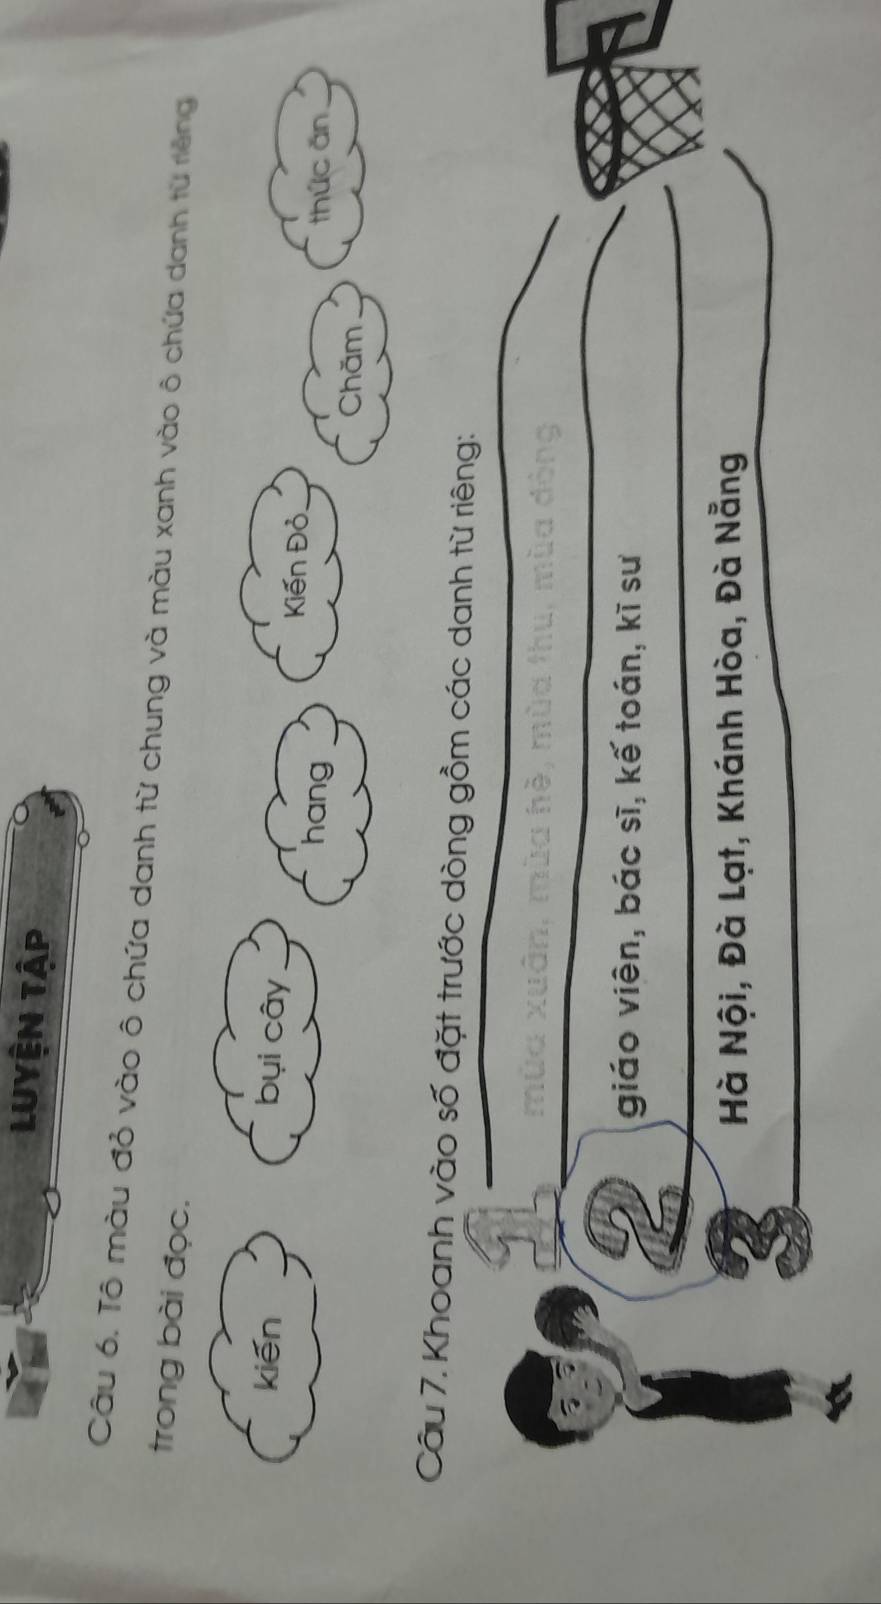 LUYỆN TẬP
Câu 6. Tô màu đỏ vào ô chứa danh từ chung và màu xanh vào ô chứa danh từ riêng
trong bài đọc.
kiến
bụi cây
hang
Kiến Đỏ
Chăm
thức ăn
Câu 7. Khoanh vào số đặt trước dòng gồm các danh từ riêng:
1 mùa xuân, mùa hè, mùa thu, mùa đông
2 giáo viên, bác sĩ, kế toán, kĩ sư
3 Hà Nội, Đà Lạt, Khánh Hòa, Đà Nẵng